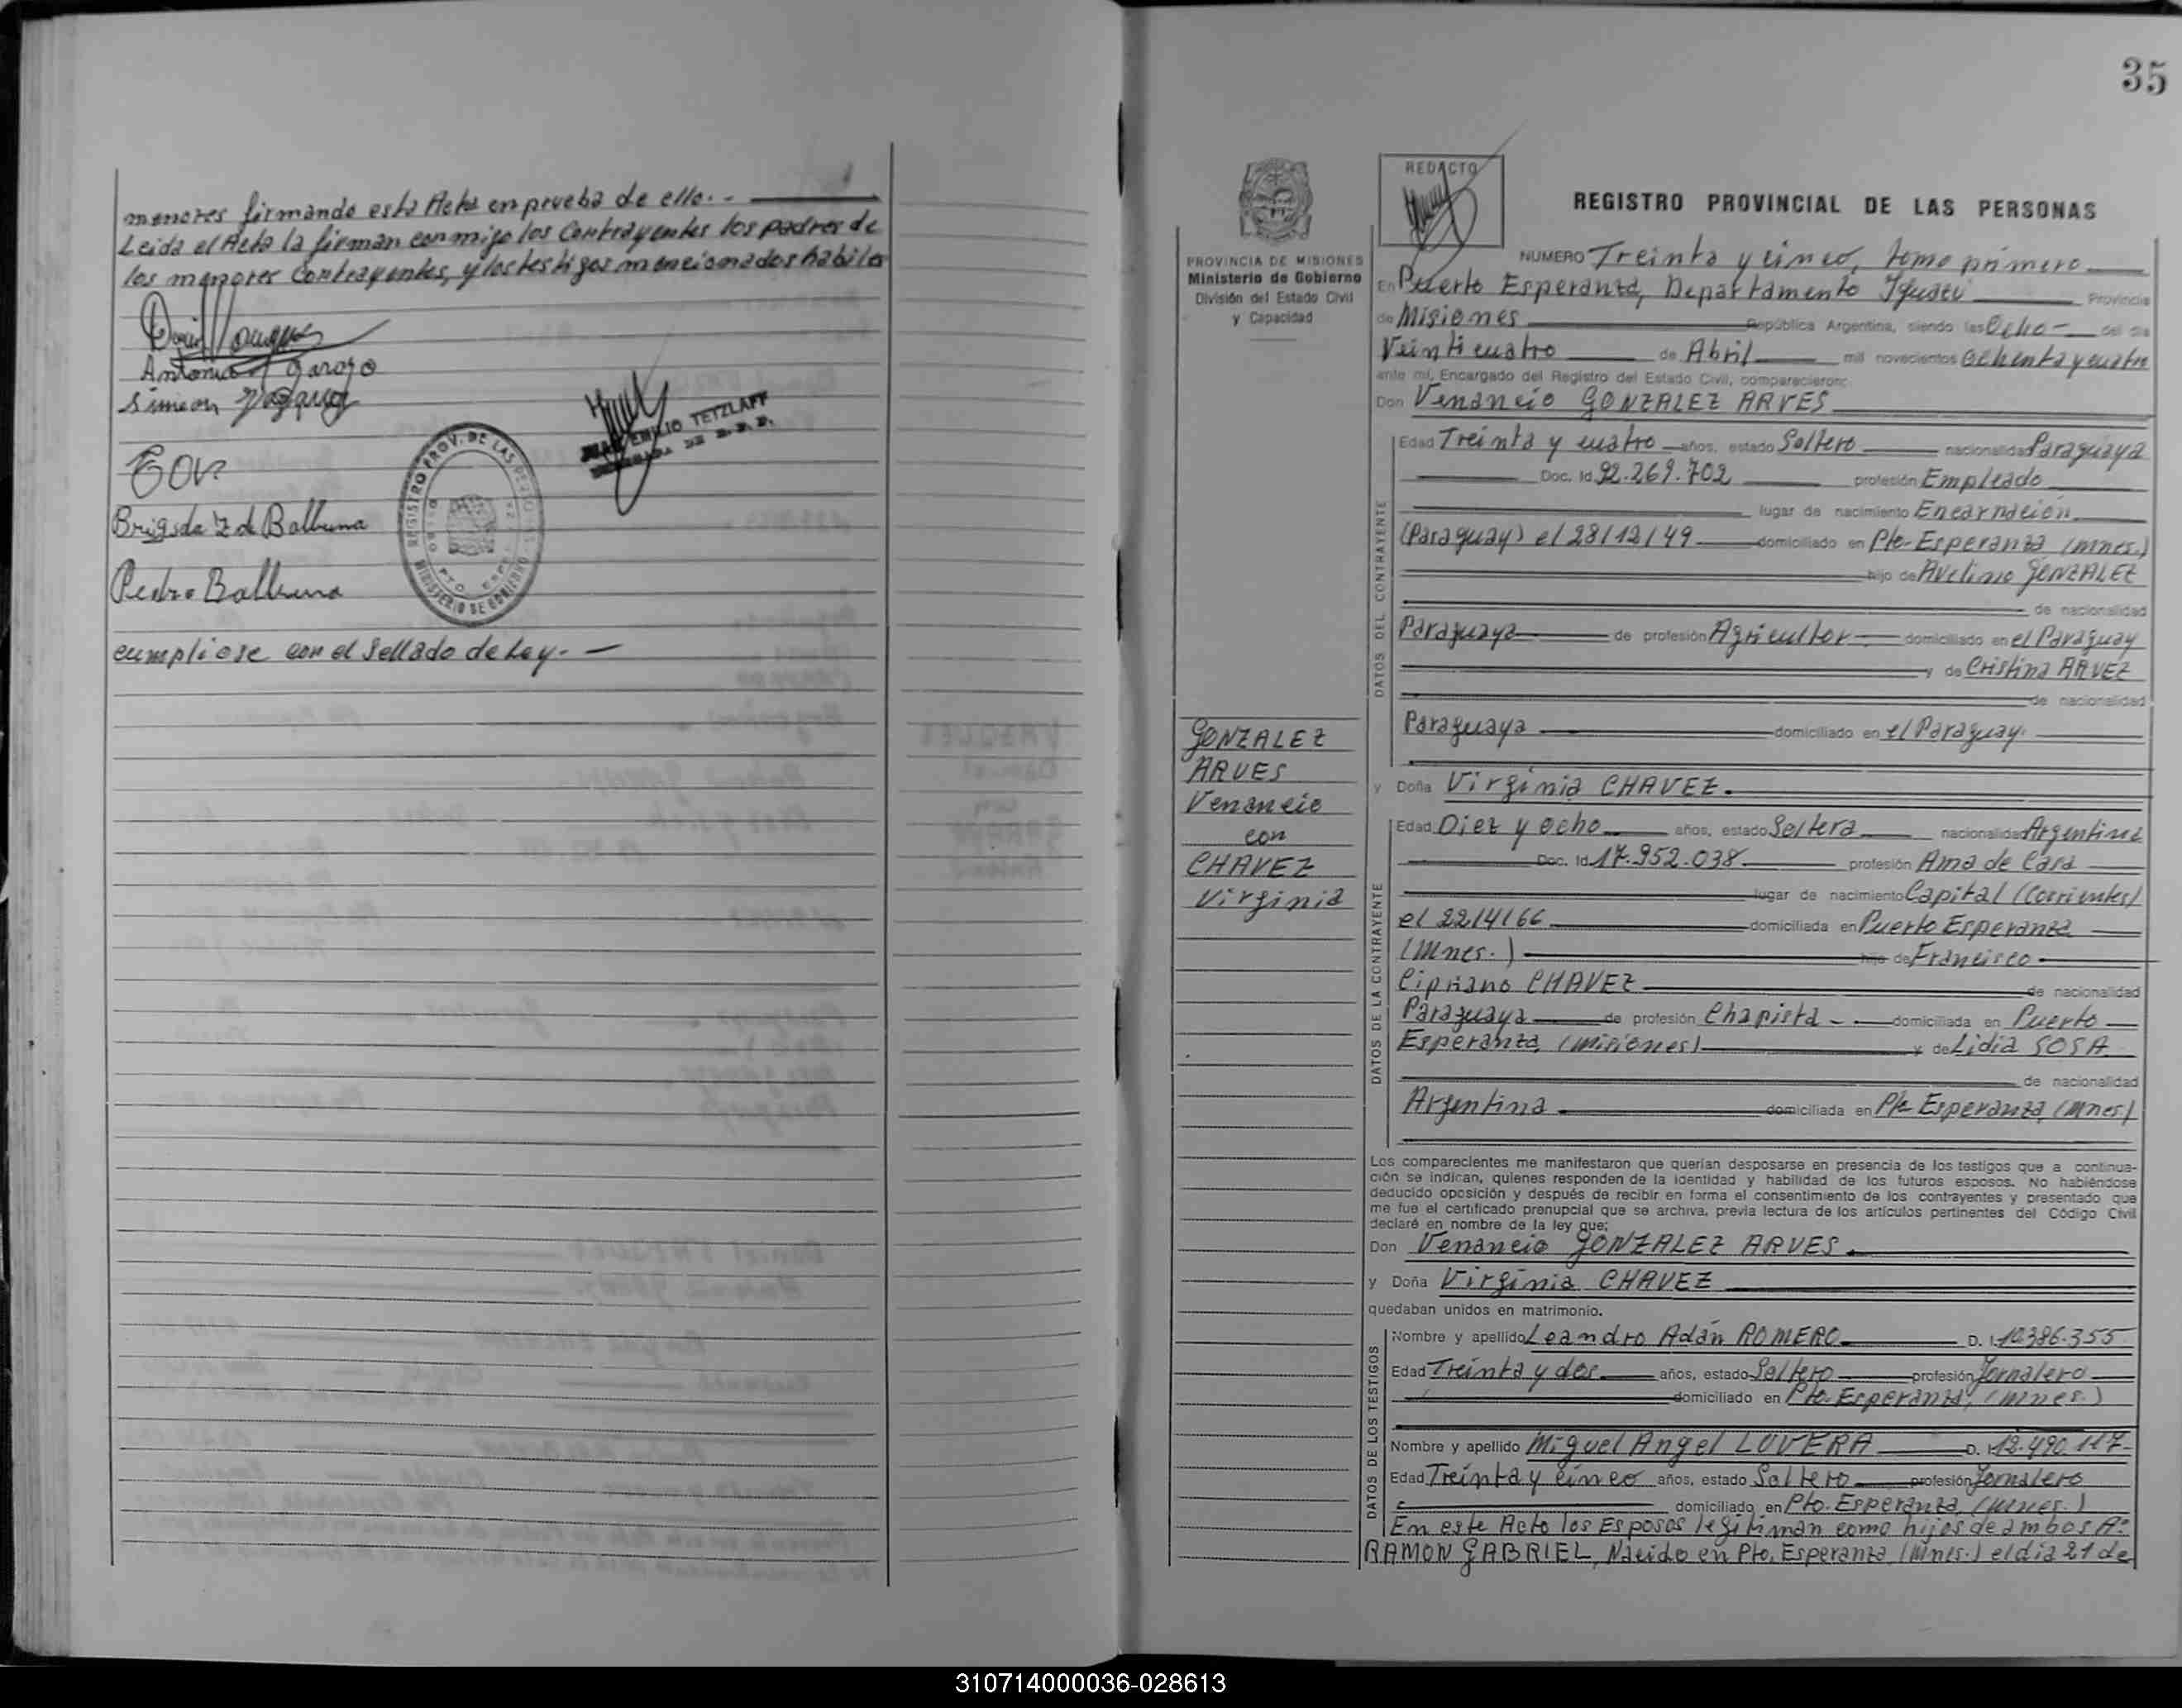 menores firmando esta Acta en prueba de ello.-
Leida el Acta la firman conmigo los Contrayentes los padres de
los menores Contrayentes, y los testigos mencionados habiles
Antonia Garozo
Simeon
Brigida Z de Balbuena
Pedro Balbuena
REGISTRO PROV. DE LAS PERSONAS
MINISTERIO DE GOBIERNO
JUAN EMILIO TETZLAFF
ENCARGADO DE R.P.P.
cumpliose con el Sellado de Ley.-
35
PROVINCIA DE MISIONES
Ministerio de Gobierno
División del Estado Civil
y Capacidad
GONZALEZ
ARVES
Venancio
con
CHAVEZ
Virginia
REDACTO
REGISTRO PROVINCIAL DE LAS PERSONAS
NUMERO Treinta y cinco, tomo primero
En Puerto Esperanza, Departamento Iguazú Provincia
de Misiones República Argentina, siendo las Ocho- del día
Veinticuatro de Abril mil novecientos Ochenta y cuatro
ante mí, Encargado del Registro del Estado Civil, comparecieron:
Don Venancio GONZALEZ ARVES
DATOS DEL CONTRAYENTE
Edad Treinta y cuatro años, estado Soltero nacionalidad Paraguaya
Doc. Id. 92.269.702 profesión Empleado
lugar de nacimiento Encarnación
(Paraguay) el 28/12/49 domiciliado en Pto-Esperanza (Mnes.)
hijo de Avelino GONZALEZ
de nacionalidad
Paraguaya de profesión Agricultor domiciliado en el Paraguay
y de Cristina ARVEZ
de nacionalidad
Paraguaya domiciliado en el Paraguay.
y Doña Virginia CHAVEZ.
DATOS DE LA CONTRAYENTE
Edad Diez y ocho años, estado Soltera nacionalidad Argentina
Doc. Id. 17.952.038 profesión Ama de Casa
lugar de nacimiento Capital (Corrientes)
el 22/4/66 domiciliada en Puerto Esperanza
(Mnes.) hija de Francisco
Cipriano CHAVEZ de nacionalidad
Paraguaya de profesión Chapista - domiciliada en Puerto
Esperanza, (Misiones) y de Lidia SOSA
de nacionalidad
Argentina domiciliada en Pto Esperanza, (Mnes)
Los comparecientes me manifestaron que querían desposarse en presencia de los testigos que a continua-
ción se indican, quienes responden de la identidad y habilidad de los futuros esposos. No habiéndose
deducido oposición y después de recibir en forma el consentimiento de los contrayentes y presentado que
me fue el certificado prenupcial que se archiva, previa lectura de los artículos pertinentes del Código Civil
declaré en nombre de la ley que;
Don Venancio GONZALEZ ARVES.
y Doña Virginia CHAVEZ
quedaban unidos en matrimonio.
DATOS DE LOS TESTIGOS
Nombre y apellido Leandro Adán ROMERO D. I. 10.386.355
Edad Treinta y dos años, estado Soltero profesión Jornalero
domiciliado en Pto. Esperanza, (Mnes.)
Nombre y apellido Miguel Angel LOVERA D. I. 12.490.117-
Edad Treinta y cinco años, estado Soltero profesión Jornalero
domiciliado en Pto. Esperanza, (Mnes.)
En este Acto los Esposos legitiman como hijos de ambos A:
RAMON GABRIEL, Nacido en Pto, Esperanza, (Mnes.) el dia 21 de
310714000036-028613